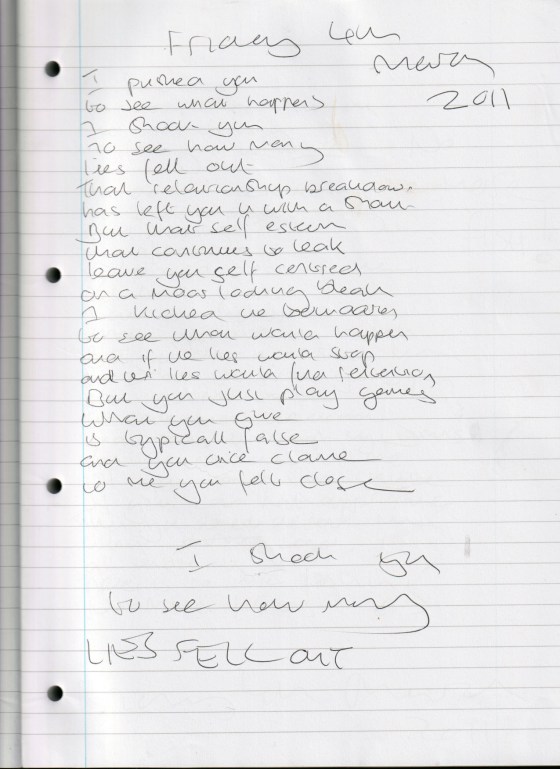 Friday 4th
March
2011
I pushed you
to see what happens
I shook you
To see how many
lies fell out
That relationship breakdown
has left you with a
But that self esteem
that continues to leak
leave you self centred
on a
I kicked the boundaries
to see what would happen
and if the lies would stop
and lies would
But you just play games
What you give
is typicall false
and you once claime
to me you felt close
I shook you
to see how many
LIES FELL OUT